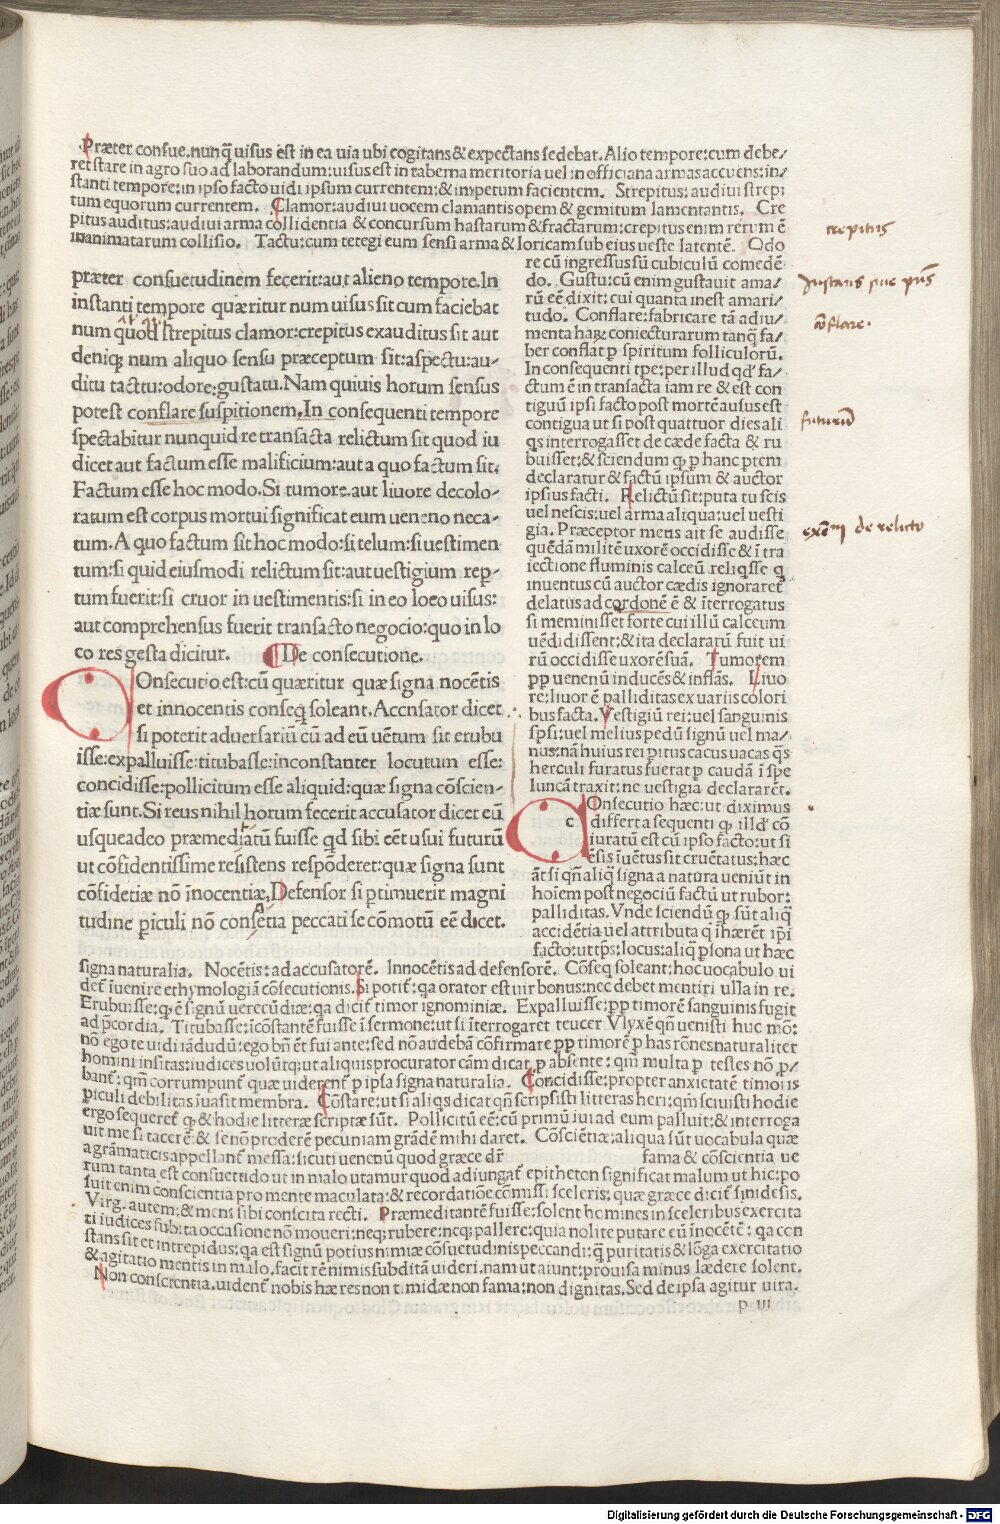 Præter consue.nunq̃ uisus est in ea uia ubi cogitans & expectans sedebat. Alio tempore:cum debe/
ret stare in agro suo ad laborandum:uisus est in taberna meritoria uel in officiana armas accuens:in/
stanti tempore:in ipso facto uidi ipsum currentem:& impetum facientem. Strepitus: audiui strepi
tum equorum currentem. Clamor:audiui uocem clamantis opem & gemitum lamentantis. Cre
pitus auditus:audiui arma collidentia & concursum hastarum & fractarum:crepitus enim rerum ē
inanimatarum collisio. Tactu:cum tetegi eum sensi arma & loricam sub eius ueste latentē. Odo
præter consuetudinem fecerit:aut alieno tempore.In
instanti tempore quæritur num uisus sit cum faciebat
num quod strepitus clamor:crepitus exauditus sit aut
deniq; num aliquo sensu præceptum sit:aspectu:au-
ditu tactu:odore:gustatu.Nam quiuis horum sensus
potest conflare suspitionem.In consequenti tempore
spectabitur nunquid re transacta relictum sit quod iu
dicet aut factum esse malificium:aut a quo factum sit.
Factum esse hoc modo.Si tumore.aut liuore decolo-
ratum est corpus mortui significat eum ueneno neca-
tum.A quo factum sit hoc modo:si telum:si uestimen
tum:si quid eiusmodi relictum sit:aut uestigium rep-
tum fuerit:si cruor in uestimentis:si in eo loco uisus:
aut comprehensus fuerit transacto negocio:quo in lo
co res gesta dicitur. De consecutione.
COnsecutio est:cū quæritur quæ signa nocētis
et innocentis conseq̃ soleant.Accusator dicet
si poterit aduersariū cū ad eū uētum sit erubu
isse:expalluisse:titubasse:inconstanter locutum esse:
concidisse:pollicitum esse aliquid:quæ signa cōscien-
tiæ sunt.Si reus nihil horum fecerit accusator dicet eū
usqueadeo præmediatū fuisse qd sibi eēt usui futurū
ut cōfidentissime resistens respōderet:quæ signa sunt
cōfidetiæ nō īnocentiæ.Defensor si ptimuerit magni
tudine piculi nō consetia peccati se cōmotū eē dicet.
re cū ingressus sū cubiculū comedē
do. Gustu:cū enim gustauit ama/
rū eē dixit:cui quanta inest amari/
tudo. Conflare:fabricare tā adiu/
menta haꝝ coniecturarum tanq̃ fa/
ber conflat p̱ spiritum folliculorū.
In consequenti tpe:per illud qd' fa/
ctum ē in transacta iam re & est con
tiguū ipsi facto post mortē ausus est
contigua ut si post quattuor dies ali
q̃s interrogasset de cæde facta & ru
buisset:& sciendum ꝙ p̱ hanc ptem
declaratur & factū ipsum & auctor
ipsius facti. Relictū sit:puta tu scis
uel nescis:uel arma aliqua:uel uesti
gia. Præceptor mens ait se audisse
quēdā militē uxorē occidisse & ī tra
iectione fluminis calceū reliq̃sse q
inuentus cū auctor cædis ignoraret
delatus ad cordonē ē & īterrogatus
si meminisset forte cui illū calceum
uēdidissent:& ita declaratū fuit ui
rū occidisse uxorē suā. Tumorem
pp uenenū inducēs & inflās. Liuo
re:liuor ē palliditas ex uariis colori
bus facta. Vestigiū rei:uel sanguinis
spsi:uel melius pedū signū uel ma/
nus:nā huius rei p̱itus cacus uacas q̃s
herculi furatus fuerat p̱ caudā ī spe
luncā traxit:ne uestigia declararēt.
c
COnsecutio hæc:ut diximus
differt a sequenti ꝙ illd' cō
iuratū est cū ipso facto:ut si
ēsis īuētus sit cruētatus:hæc
āt si qñ aliq̃ signa a natura ueniūt in
hoīem post negociū factū ut rubor:
palliditas. Vnde sciendū ꝙ sūt aliq̃
accidētia uel attributa q̃ ihærēt ip̄i
facto:ut tps:locus:aliq̃ p̱sona ut hæc
signa naturalia. Nocētis:ad accusatorē. Innocētis ad defensorē. Cōseq̃ soleant:hoc uocabulo ui
det' īuenire ethymologiā cōsecutionis. Si potit':qa orator est uir bonus:nec debet mentiri ulla in re.
Erubuisse:q ē signū uerecūdiæ:qa dicit' timor ignominiæ. Expalluisse:pp timorē sanguinis fugit
ad p̄cordia. Titubasse:īcōstantē fuisse ī sermone:ut si īterrogaret teucer Vlyxē qñ uenisti huc mō:
nō ego te uidi iādudū:ego bñ ēt fui ante:sed nō audebā cōfirmare pp timorē p̱ has rōnes naturaliter
homini insitas:iudices uolūt q; ut aliquis procurator cām dicat p̱ absente: qm̄ multa p̱ testes nō p̱/
bant': qm̄ corrumpunt' quæ uiderent' p̱ ipsa signa naturalia. Concidisse:propter anxietatē timoris
piculi debilitas īuasit membra. Cōstare:ut si aliqs dicat qñ scripsisti litteras heri:qm̄ sciuisti hodie
ergo sequeret' ꝙ & hodie litteræ scriptæ sūt. Pollicitū eē:cū primū iui ad eum palluit:& interroga
uit me si tacerē:& se nō proderē pecuniam grādē mihi daret. Cōsciētiæ:aliqua sūt uocabula quæ
a grāmaticis appellant' messa:sicuti uenenū quod græce dr̄ fama & cōscientia ue
rum tanta est consuettudo ut in malo utamur quod adiungat' epitheton significat malum ut hic:po
suit enim conscientia pro mente maculata:& recordatiōe cōmissi sceleris: quæ græce dicit' sinidesis.
Virg. autem:& mens sibi conscita recti. Præmeditantē fuisse:solent homines in sceleribus exercita
ti iudices subita occasione nō moueri:neq; rubere:neq; pallere:quia nolite putare eū īnocētē: qa con
stans sit et intrepidus:qa est signū potius nimiæ cōsuetudinis peccandi:q̃ puritatis & lōga exercitatio
& agitatio mentis in malo.facit rē nimis subditā uideri.nam ut aiunt:prouisa minus lædere solent.
Non conscientia.uident' nobis hæ res non timidæ non fama:non dignitas.Sed de ipsa agitur uita.
p iii
crepitus
conflare.
futurum
de relicto
Digitalisierung gefördert durch die Deutsche Forschungsgemeinschaft - DFG